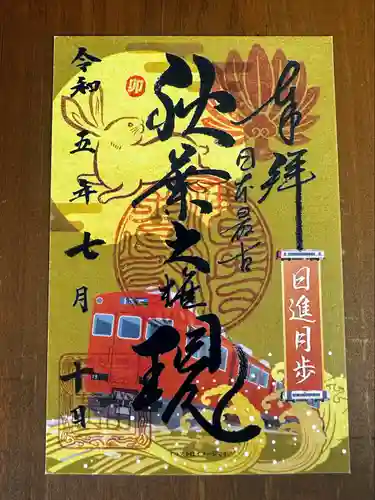 奉拝
日本最古
日進月歩
秋葉大権現
卯
令和五年七月十日